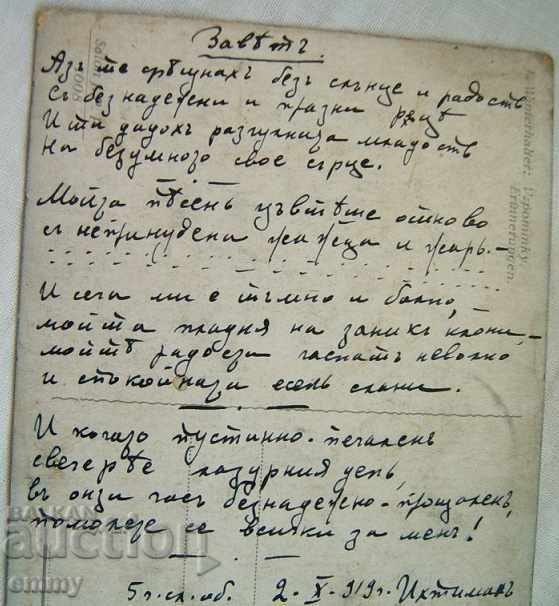 Завѣтъ.
Азъ те срѣщнахъ безъ слънце и радость
Съ безнадежни и празни рѫцѣ
И ти дадохъ разгулната младость
На безумното свое сърце.
Мойта пѣсень цъвтѣше отново
съ непринудени жажда и жарь.—
И сега ми е тъмно и болно,
мойта пладня на заникъ клони,—
мойтѣ радости гаснатъ неволно
и спокойната есень
И когато пустинно-печаленъ
свечерѣе лазурния день,
въ онзи часъ безнадеждно-прощаленъ,
помолете се всички за менъ!
5 г. ск. об. 2-X-919г. Ихтиманъ
Winterhalter: Vzpomínky.
Erinnerungen
Salon
1008
BALKAN
auction
emmy